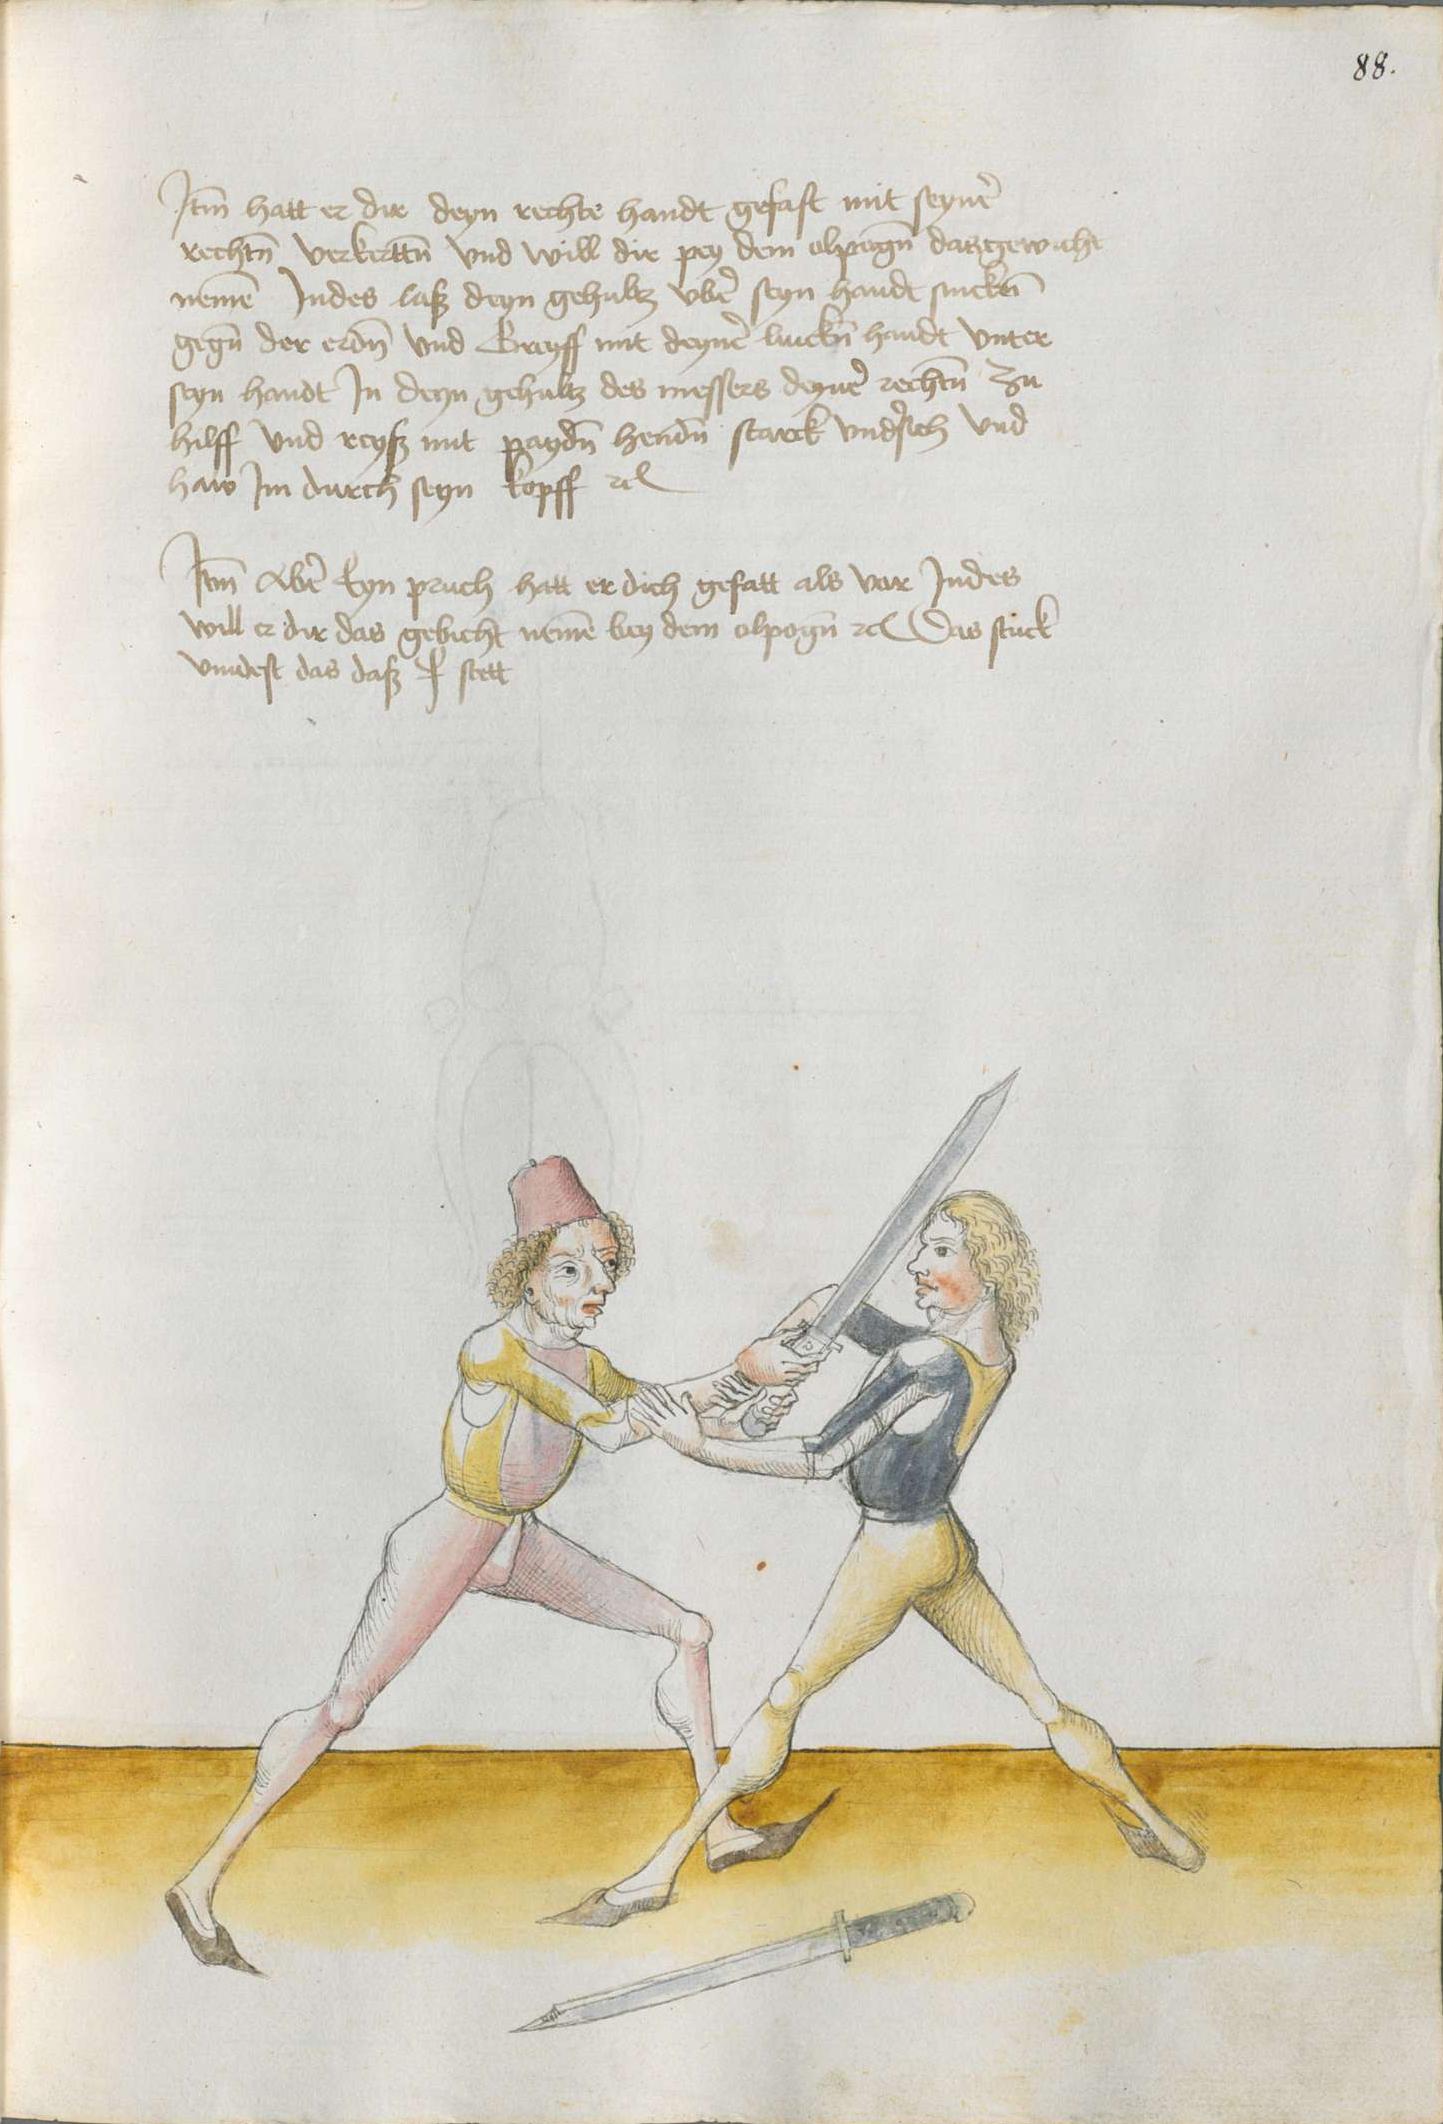 88.
Itm̄ hatt er dir deyn rechte handt gefast mit seyner̄
rechtn̄ verkerttn̄ vnd will dir pey dem elpogn̄ das gewicht
neme͂ Indes laß deyn gehultz vber̄ seyn handt sincken̄
gegn̄ der erdn̄ vnd Greyff mit deyner̄ linckn̄ handt vnter
seyn handt In deyn gehultz des messers deyner̄ rechtn̄ Zu
hilff vnd reyß mit paydn̄ hendn̄ starck vndersich vnd
haw Im durch seyn kopff ⁊c
Itm̄ Aber̄ Eyn pruch hatt er dich gefatt als vor Indes
will er dir das gebicht neme͂ bey dem elpogn̄ ⁊c Das stuck
vindest das daß stett